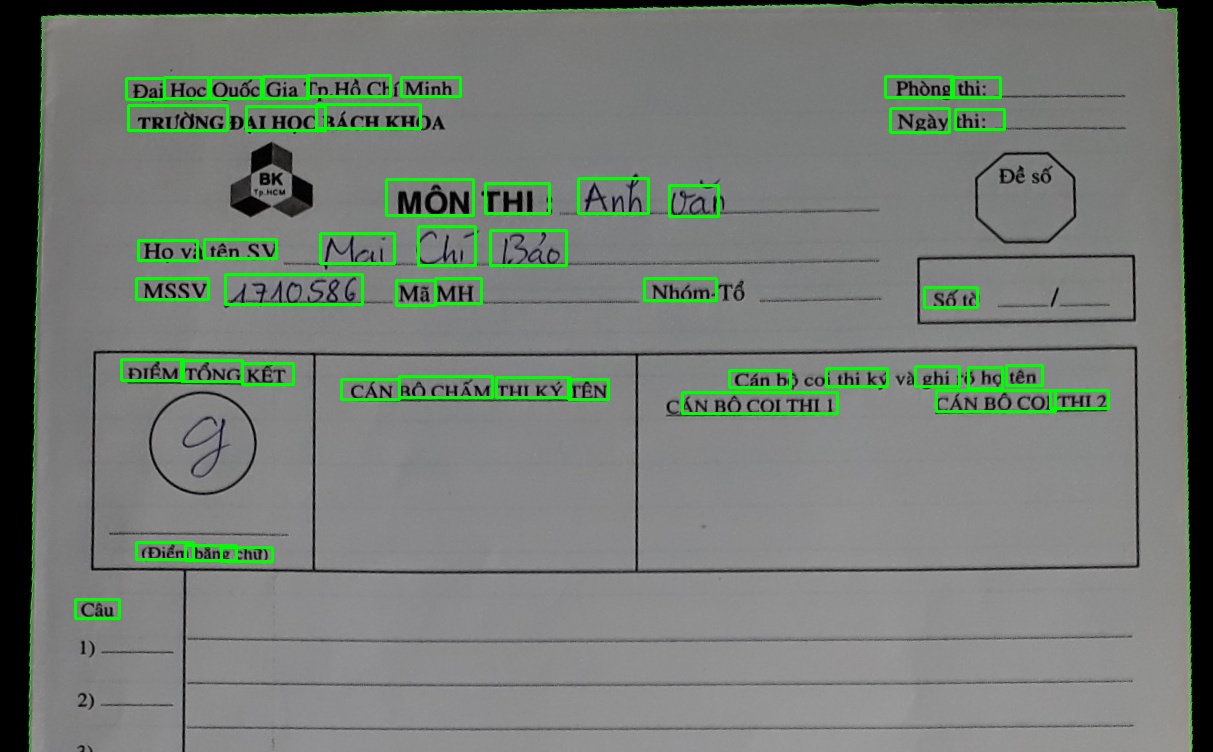 Đại Học Quốc Gia Tp.Hồ Chí Minh
TRƯỜNG ĐẠI HỌC BÁCH KHOA
Phòng thi:
Ngày thi:
BK
Tp.HCM
Đề số
MÔN THI : Anh văn
Họ và tên SV Mai Chí Bảo
MSSV 1710586 Mã MH Nhóm-Tổ
Số tờ /
ĐIỂM TỔNG KẾT
9
(Điểm bằng chữ)
CÁN BỘ CHẤM THI KÝ TÊN
Cán bộ coi thi ký và ghi rõ họ tên
CÁN BỘ COI THI 1 CÁN BỘ COI THI 2
Câu
1)
2)
3)